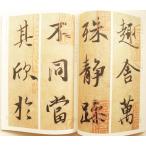 趣舍萬
殊靜躁
不同當
其欣於